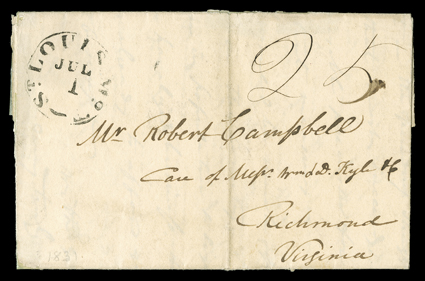 ST. LOUIS Mo.
JUL
1
25
Mr Robert Campbell
Care of Messrs. Kyle &C
Richmond
Virginia